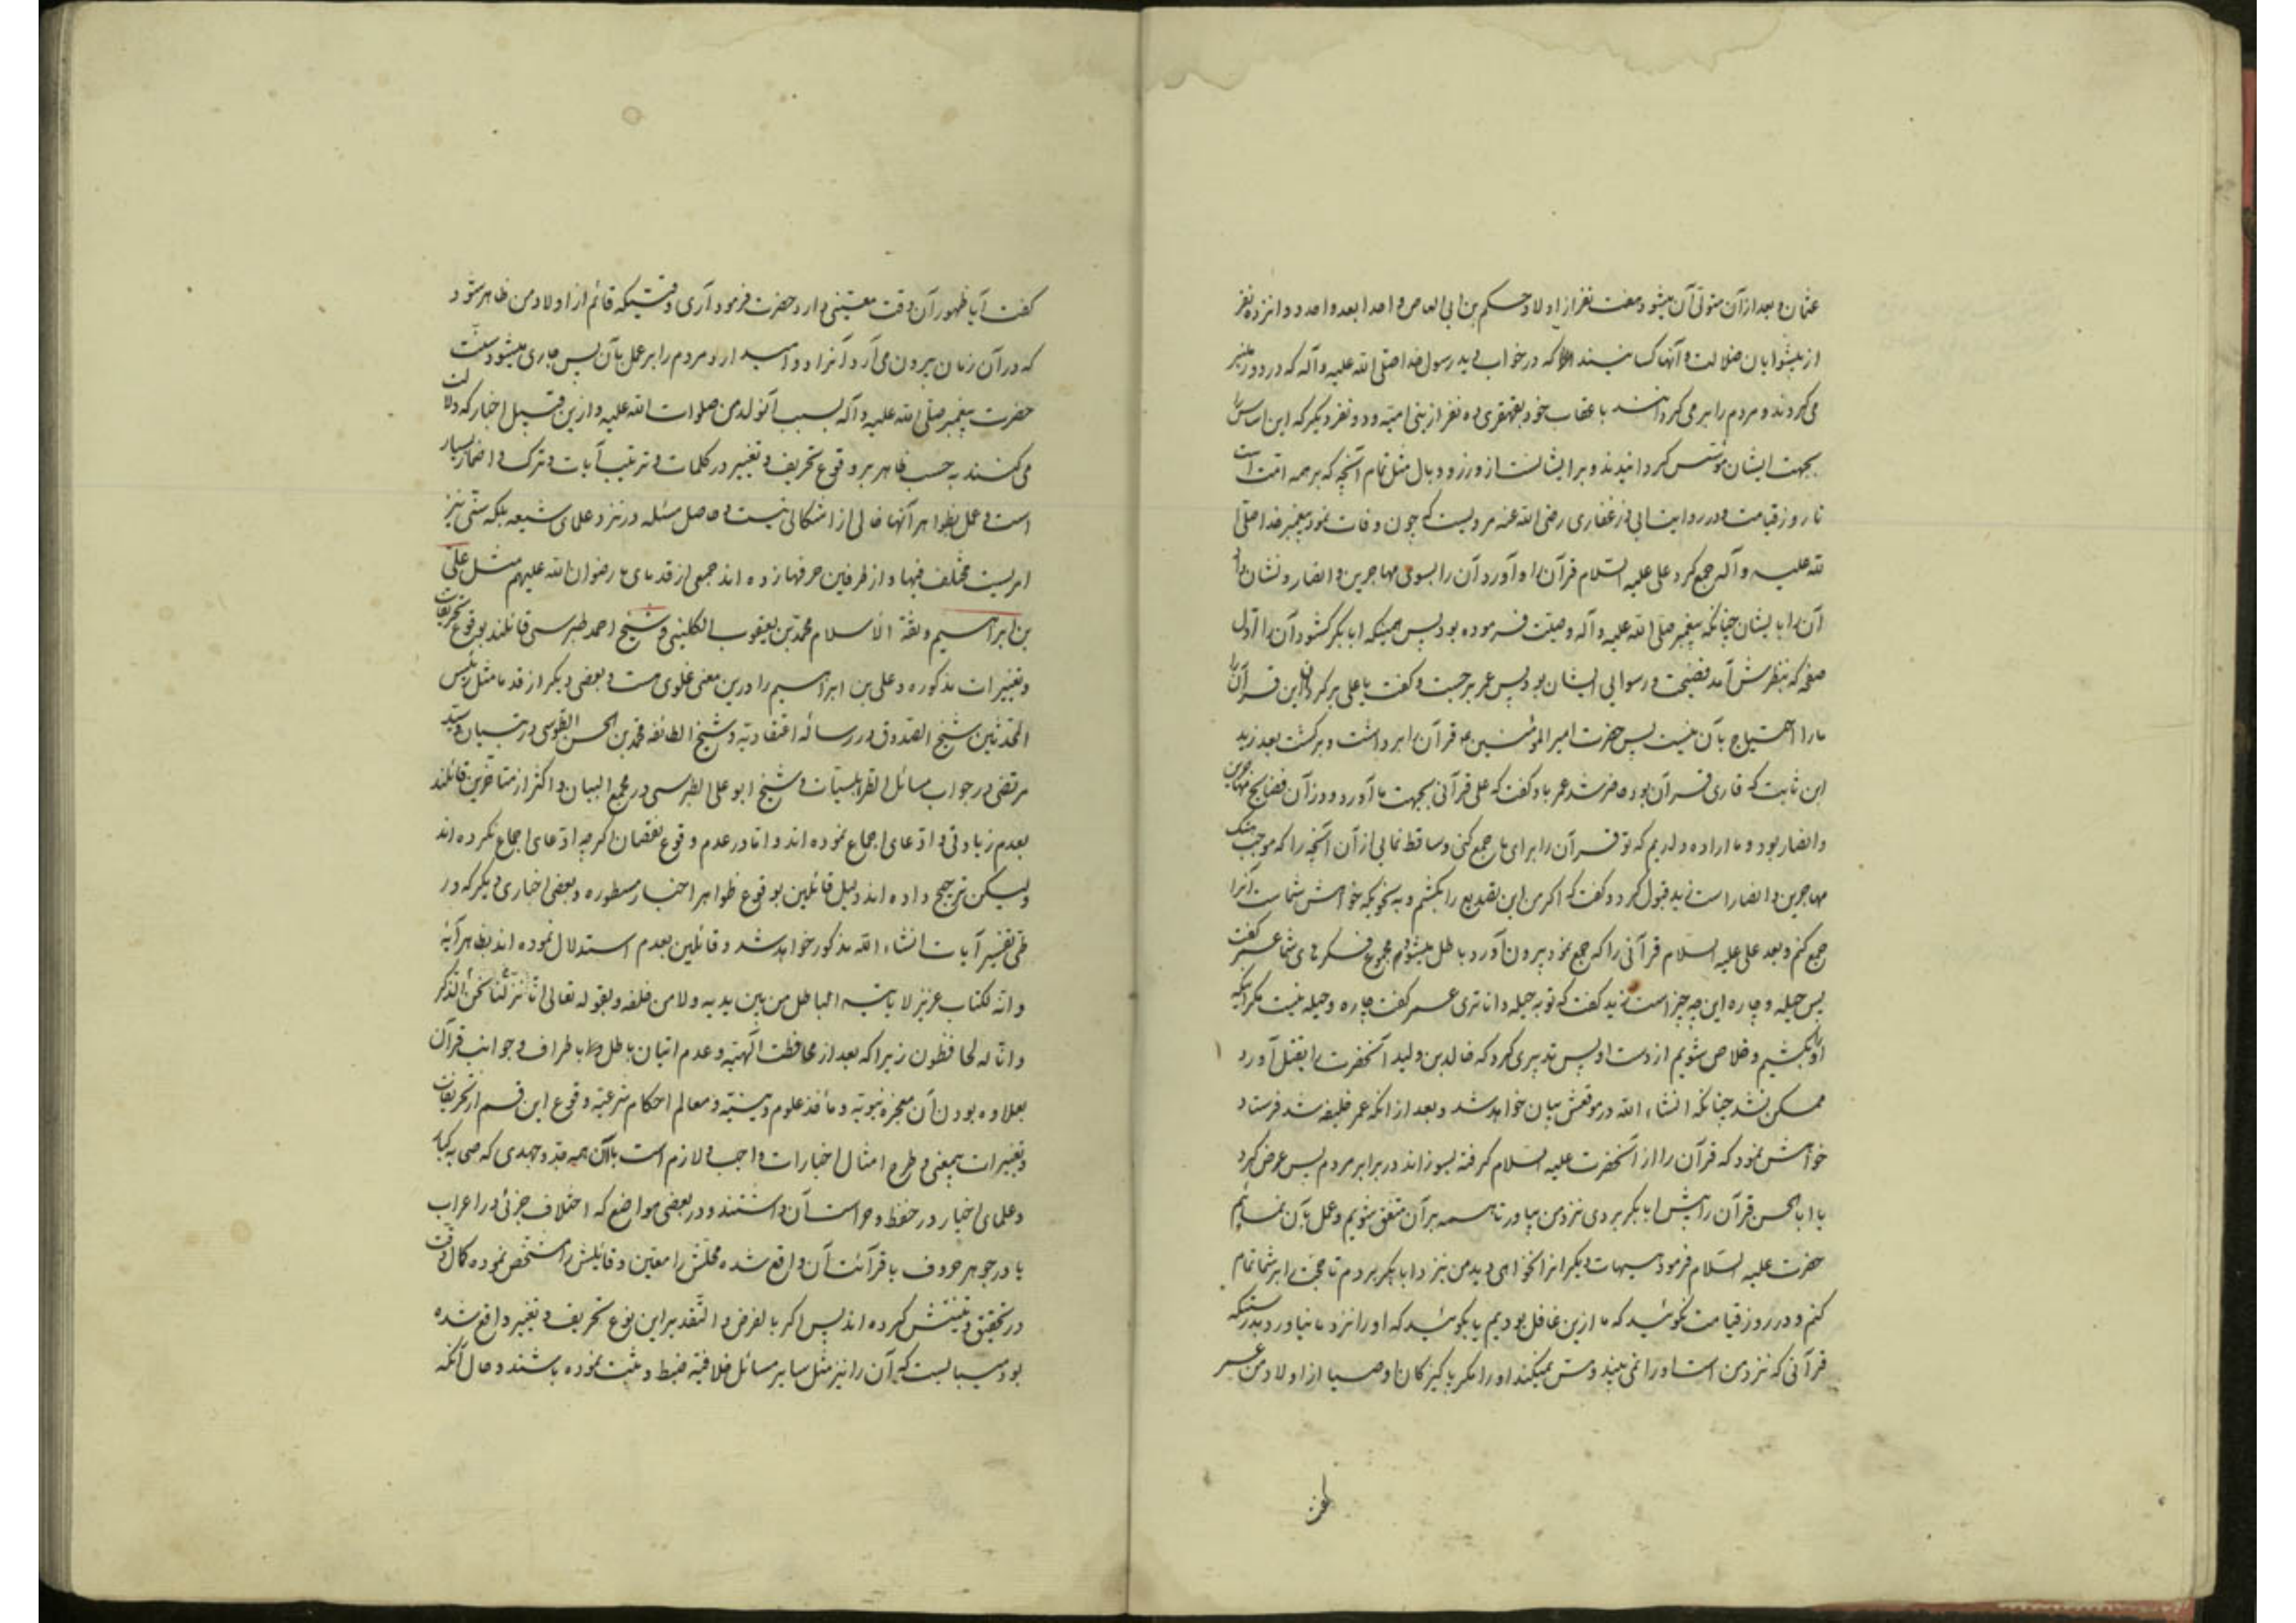 عثمان و بعد از آن متولی آن میشود هفت نفر از اولاد حکم بن ابی العاص واحدا بعد واحد دوازده نفر
از پیشوایان ضلالت و آنها کسانیند که در خواب دید رسول خدا صلی الله علیه و آله که در دور منبر
می کردند و مردم را بر می کردانند باعقاب خود بقهقری ده نفر از بنی امیه و دو نفر دیکر که این اساس را
بجهت ایشان مؤسس کردانیدند و بر ایشانست از وزر و وبال مثل تمام آنچه که بر همه امت است
تا روز قیامت و در روایت ابی ذر غفاری رضی الله عنه مرویست که چون وفات نمود پیغمبر خدا صلی
الله علیه و آله جمع کرد علی علیه السلام قرآن را و آورد آن را بسوی مهاجرین و انصار و نشان داد
آن را بایشان چنانکه پیغمبر صلی الله علیه و آله وصیت فرموده بود پس همینکه ابابکر کشود آن را اول
صفحه که بنظرش آمد فضیحت و رسوایی ایشان بود پس عمر برجست و کفت یا علی برکردان این قرآن را
مارا احتیاج بآن نیست پس حضرت امیرالمؤمنین ع قرآن را برداشت و برکشت بعد زید
ابن ثابت که قاری قرآن بود حاضر شد عمر باو کفت که علی قرآنی بجهت ما آورد و در آن فضایح مهاجرین
و انصار بود و ما اراده داریم که تو قرآن را برای ما جمع کنی و ساقط نمایی از آن آنچه را که موجب هتک
مهاجرین و انصار است زید قبول کرد و کفت که اکر من این تصدیع را بکشم و به نحویکه خواهش شماست آنرا
جمع کنم و بعد علی علیه السلام قرآنی را که جمع نمود بیرون آورد باطل میشود مجموع فکرهای شما عمر کفت
پس حیله و چاره این چه چیز است زید کفت که تو به حیله داناتری عمر کفت چاره و حیله نیست مکر اینکه
او را بکشیم و خلاص شویم از دست او پس تدبیری کرد که خالد بن ولید آنحضرت را بقتل آورد
ممکن نشد چنانکه انشاء الله در موقعش بیان خواهد شد و بعد از آنکه عمر خلیفه شد فرستاد
خواهش نمود که قرآن را از آنحضرت علیه السلام کرفته بسوزاند در برابر مردم پس عرض کرد
یا ابا الحسن قرآن را پیش ابابکر بردی نزد من بیاور تا همه بر آن متفق شویم و عمل بآن نمائیم
حضرت علیه السلام فرمود هیهات دیکر آنرا نخواهی دید من نزد ابابکر بردم تا حجت را بر شما تمام
کنم و در روز قیامت نکوئید که ما ازین غافل بودیم یا بکوئید که او را نزد ما نیاورد بدرستیکه
قرآنی که نزد من است او را نمی بیند و مس نمیکند او را مکر پاکیزکان اوصیا از اولاد من عمر
کفت آیا ظهور آن وقت معینی دارد حضرت فرمود آری وقتیکه قائم از اولاد من ظاهر شود
که در آن زمان بیرون می آرد آنرا و وامیدارد مردم را بر عمل بآن پس جاری میشود سنت
حضرت پیغمبر صلی الله علیه و آله بسبب آنولد من صلوات الله علیه و ازین قبیل اخبار که دلالت
می کنند به حسب ظاهر بر وقوع تحریف و تغییر در کلمات و ترتیب آیات و ترک و اضمار بسیار
است و عمل بظواهر آنها خالی از اشکالی نیست و حاصل مسئله در نزد علمای شیعه بلکه سنی نیز
امریست مختلف فیها و از طرفین حرفها زده اند جمعی از قدمای ما رضوان الله علیهم مثل علی
بن ابراهیم و ثقة الاسلام محمد بن یعقوب الکلینی و شیخ احمد طبرسی قائلند بوقوع تحریفات
و تغییرات مذکوره و علی بن ابراهیم را درین معنی غلوی هست و بعضی دیکر از قدما مثل رئیس
المحدثین شیخ الصدوق در رساله اعتقادیه و شیخ الطائفه محمد بن الحسن الطوسی در تبیان و سید
مرتضی در جواب مسائل الطرابلسیات و شیخ ابو علی الطبرسی در مجمع البیان و اکثر از متأخرین قائلند
بعدم زیادتی و ادعای اجماع نموده اند و اما در عدم وقوع نقصان اکرچه ادعای اجماع نکرده اند
ولیکن ترجیح داده اند دلیل قائلین بوقوع ظواهر اخبار مسطوره و بعضی اخباری دیکر که در
طی تفسیر آیات انشاء الله مذکور خواهد شد و قائلین بعدم استدلال نموده اند بظاهر آیۀ
و انه لکتاب عزیز لا یاتیه الباطل من بین یدیه ولا من خلفه و بقوله تعالی انا نحن نزلنا الذکر
و انا له لحافظون زیرا که بعد از محافظت الهیه و عدم اتیان باطل باطراف و جوانب قرآن
بعلاوه بودن آن معجزه نبویه و مأخذ علوم دینیه و معالم احکام شرعیه وقوع این قسم از تحریفات
و تغییرات بیمعنی و طرح امثال اخبارات واجب و لازم است با آن همه جد و جهدی که صحابه کبار
و علمای اخیار در حفظ و حراست آن داشتند و در بعضی مواضع که اختلاف جزئی در اعراب
یا در جوهر حروف یا قرائت آن واقع شده محلش را معین و قائلش را مشخص نموده کمال دقت
در تحقیق و تفتیش کرده اند پس اکر بالفرض و التقدیر این نوع تحریف و تغییر واقع شده
بود میبایست که آن را نیز مثل سایر مسائل خلافیه ضبط و ثبت نموده باشند و حال آنکه